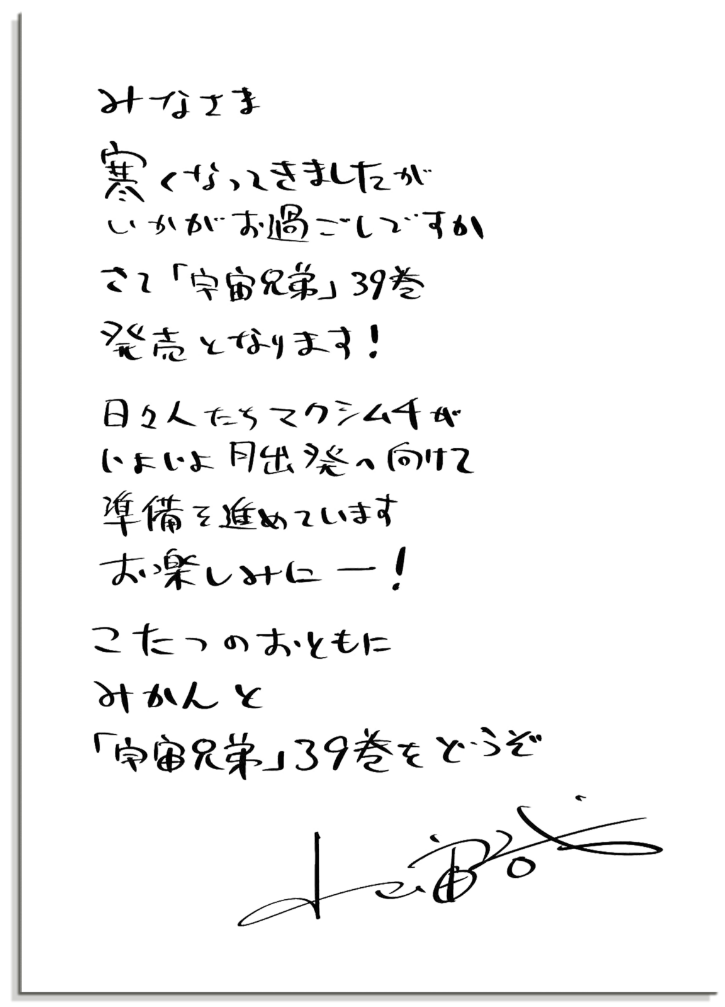 みなさま
寒くなってきましたが
いかがお過ごしですか
さて「宇宙兄弟」39巻
発売となります!
日々人たちマクシム千が
いよいよ月出発へ向けて
準備を進めています
お楽しみにー!
こたつのおともに
みかんと
「宇宙兄弟」39巻をどうぞ